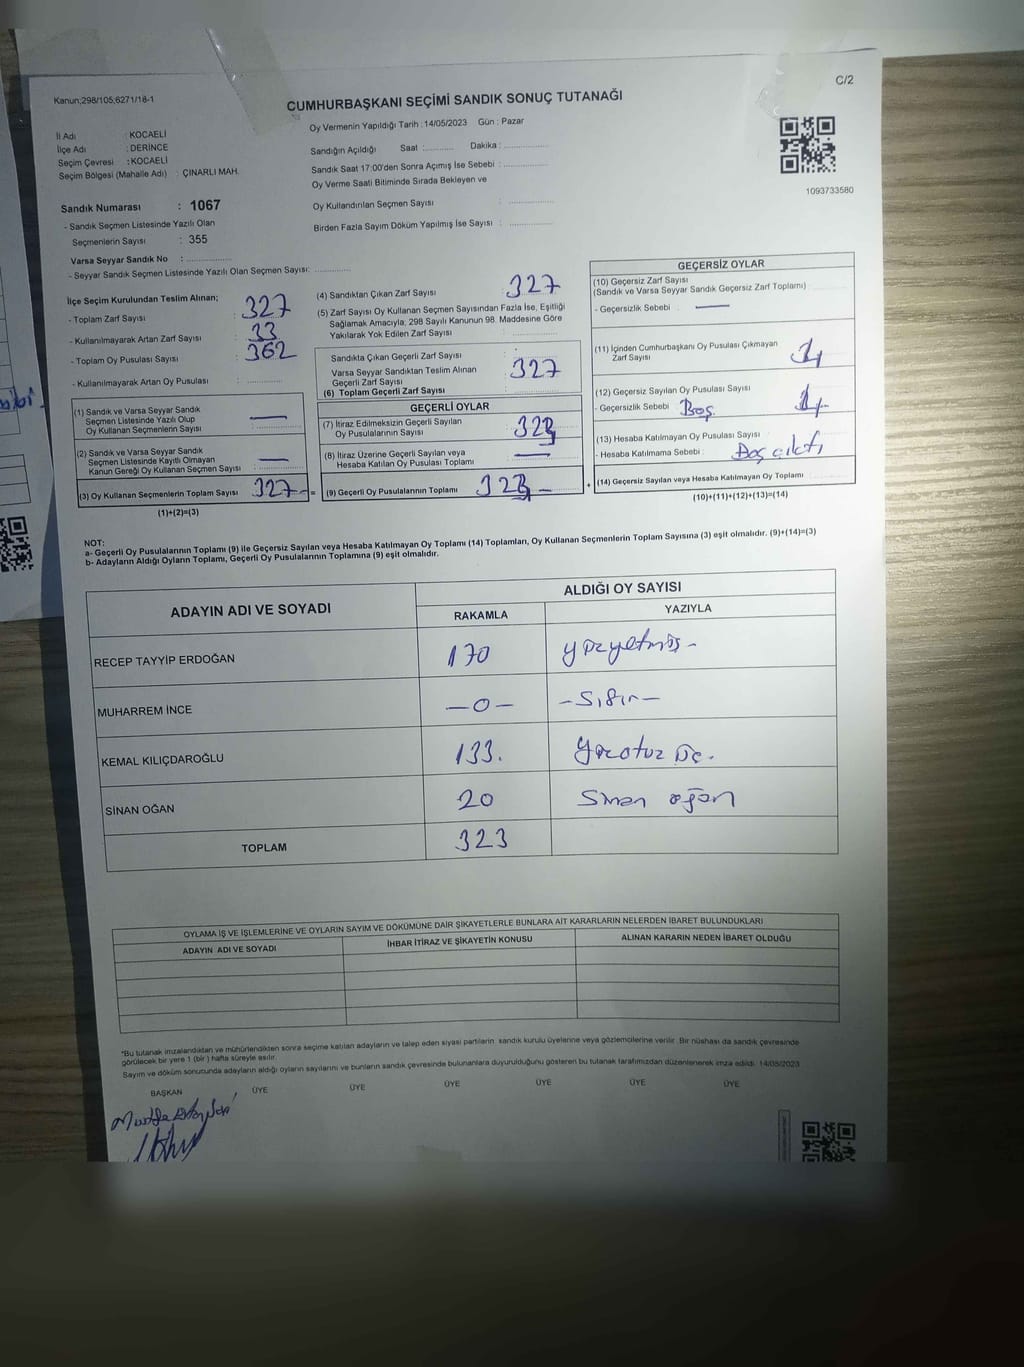 C/2
Kanun;298/105;6271/18-1
CUMHURBAŞKANI SEÇİMİ SANDIK SONUÇ TUTANAĞI
İl Adı : KOCAELİ
İlçe Adı : DERİNCE
Seçim Çevresi : KOCAELİ
Seçim Bölgesi (Mahalle Adı) : ÇINARLI MAH.
Sandık Numarası : 1067
- Sandık Seçmen Listesinde Yazılı Olan
Seçmenlerin Sayısı : 355
Varsa Seyyar Sandık No :
- Seyyar Sandık Seçmen Listesinde Yazılı Olan Seçmen Sayısı:
Oy Vermenin Yapıldığı Tarih : 14/05/2023 Gün : Pazar
Sandığın Açıldığı Saat : Dakika :
Sandık Saat 17:00'den Sonra Açımış İse Sebebi :
Oy Verme Saati Bitiminde Sırada Bekleyen ve
Oy Kullandırılan Seçmen Sayısı :
Birden Fazla Sayım Döküm Yapılmış İse Sayısı :
1093733580
İlçe Seçim Kurulundan Teslim Alınan;
- Toplam Zarf Sayısı : 327
- Kullanılmayarak Artan Zarf Sayısı : 33
- Toplam Oy Pusulası Sayısı : 362
- Kullanılmayarak Artan Oy Pusulası :
(1) Sandık ve Varsa Seyyar Sandık
Seçmen Listesinde Yazılı Olup
Oy Kullanan Seçmenlerin Sayısı : —
(2) Sandık ve Varsa Seyyar Sandık
Seçmen Listesinde Kayıtlı Olmayan
Kanun Gereği Oy Kullanan Seçmen Sayısı : —
(3) Oy Kullanan Seçmenlerin Toplam Sayısı 327 - =
(1)+(2)=(3)
(4) Sandıktan Çıkan Zarf Sayısı : 327
(5) Zarf Sayısı Oy Kullanan Seçmen Sayısından Fazla İse, Eşitliği
Sağlamak Amacıyla, 298 Sayılı Kanunun 98. Maddesine Göre
Yakılarak Yok Edilen Zarf Sayısı :
Sandıkta Çıkan Geçerli Zarf Sayısı :
Varsa Seyyar Sandıktan Teslim Alınan
Geçerli Zarf Sayısı : 327
(6) Toplam Geçerli Zarf Sayısı :
GEÇERLİ OYLAR
(7) İtiraz Edilmeksizin Geçerli Sayılan
Oy Pusulalarının Sayısı : 323
(8) İtiraz Üzerine Geçerli Sayılan veya
Hesaba Katılan Oy Pusulası Toplamı : —
(9) Geçerli Oy Pusulalarının Toplamı 323 - +
GEÇERSİZ OYLAR
(10) Geçersiz Zarf Sayısı
(Sandık ve Varsa Seyyar Sandık Geçersiz Zarf Toplamı)
- Geçersizlik Sebebi : —
(11) İçinden Cumhurbaşkanı Oy Pusulası Çıkmayan
Zarf Sayısı
(12) Geçersiz Sayılan Oy Pusulası Sayısı
- Geçersizlik Sebebi : Boş
(13) Hesaba Katılmayan Oy Pusulası Sayısı :
- Hesaba Katılmama Sebebi : Boş çıktı
(14) Geçersiz Sayılan veya Hesaba Katılmayan Oy Toplamı
(10)+(11)+(12)+(13)=(14)
NOT:
a- Geçerli Oy Pusulalarının Toplamı (9) ile Geçersiz Sayılan veya Hesaba Katılmayan Oy Toplamı (14) Toplamları, Oy Kullanan Seçmenlerin Toplam Sayısına (3) eşit olmalıdır. (9)+(14)=(3)
b- Adayların Aldığı Oyların Toplamı, Geçerli Oy Pusulalarının Toplamına (9) eşit olmalıdır.
ADAYIN ADI VE SOYADI ALDIĞI OY SAYISI
RAKAMLA YAZIYLA
RECEP TAYYİP ERDOĞAN 170 yüzyetmiş -
MUHARREM İNCE —0— —Sıfır—
KEMAL KILIÇDAROĞLU 133. yüzotuz üç.
SİNAN OĞAN 20 Sinan oğan
TOPLAM 323
OYLAMA İŞ VE İŞLEMLERİNE VE OYLARIN SAYIM VE DÖKÜMÜNE DAİR ŞİKAYETLERLE BUNLARA AİT KARARLARIN NELERDEN İBARET BULUNDUKLARI
ADAYIN ADI VE SOYADI İHBAR İTİRAZ VE ŞİKAYETİN KONUSU ALINAN KARARIN NEDEN İBARET OLDUĞU
*Bu tutanak imzalandıktan ve mühürlendikten sonra seçime katılan adayların ve talep eden siyasi partilerin sandık kurulu üyelerine veya gözlemcilerine verilir. Bir nüshası da sandık çevresinde
görülecek bir yere 1 (bir) hafta süreyle asılır.
Sayım ve döküm sonucunda adayların aldığı oyların sayılarını ve bunların sandık çevresinde bulunanlara duyurulduğunu gösteren bu tutanak tarafımızdan düzenlenerek imza edildi. 14/05/2023
BAŞKAN ÜYE ÜYE ÜYE ÜYE ÜYE ÜYE